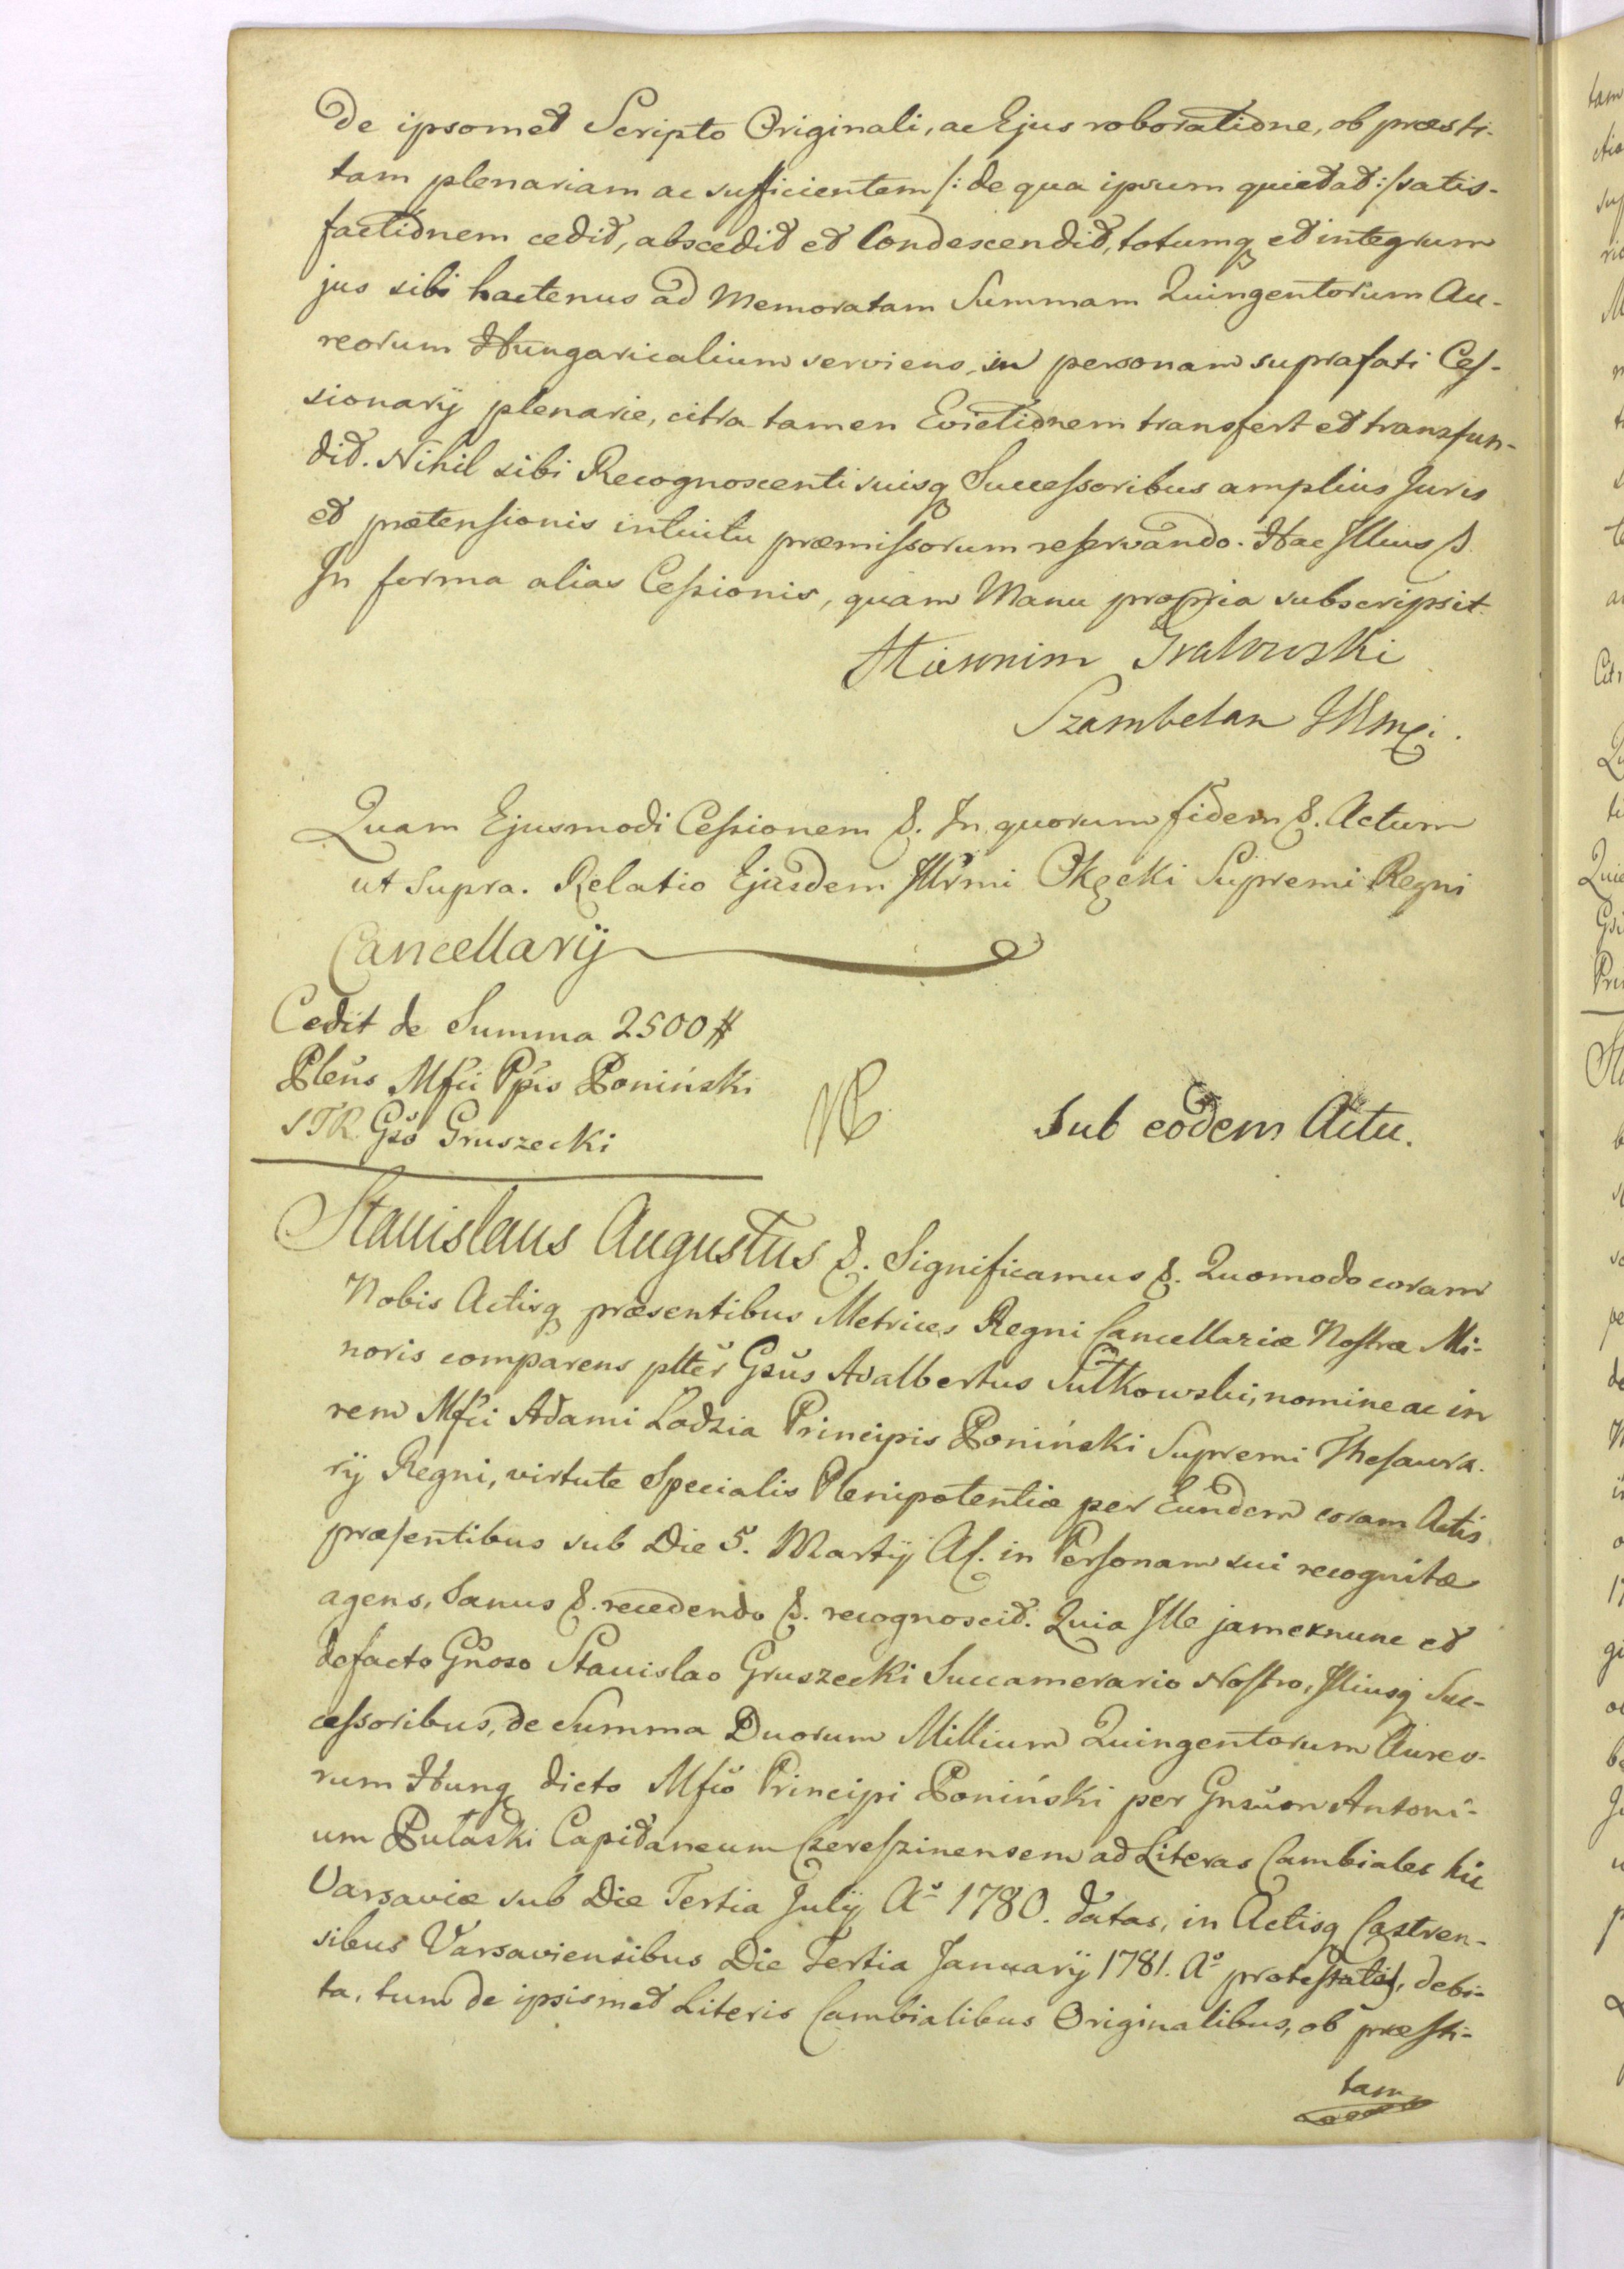 De ipsomet Scripto Originali, ac Ejus roboratione, ob præsti-
tam plenariam ac sufficientem /: de qua ipsum quietat :/ satis-
factionem cedit, abscedit et Condescendit, totumq et integrum
jus sibi hactenus ad Memoratam Summam Quingentorum Au-
reorum Hungaricalium serviens, in personam suprafati Ces-
sionarij plenarie, citra tamen Evictionem transfert et transfun-
dit. Nihil sibi Recognoscenti suisq Successoribus amplius Juris
et prætensionis intuitu præmissorum reservando. Hac Illius
In forma alias Cessionis, quam Manu propria subscripsit.
Hieronim
Szambelan
Quam Ejusmodi Cessionem &. In quorum fidem &. Actum
ut Supra. Relatio Ejusdem Illrmi Okęcki Supremi Regni
Cancellarij
Cedit de Summa 2500 #
Pleñs Mfci Ppis Poniński
STR. Gso Gruszecki
Sub eodem Actu.
Stanislaus Augustus &. Significamus &. Quomodo coram
Nobis Actisq præsentibus Metrices Regni Cancellariæ Nostræ Mi-
noris comparens plter Gsus Adalbertus Sułkowski, nomine ac in
rem Mfci Adami Lodzia Principis Poniński Supremi Thesaura-
rij Regni, virtute Specialis Plenipotentiæ per Eundem coram Actis
præsentibus sub Die 5. Martij A. in Personam sui recognitæ
agens, Sanus &. recedendo &. recognoscit. Quia Ille jam exnunc et
defacto Gnoso Stanislao Gruszecki Succamerario Nostro, Illiusq Suc-
cessoribus, de Summa Duorum Millium Quingentorum Aureo-
rum Hung dicto Mfco Principi Poniński per Gnsum Antoni-
um Pułaski Capitaneum Czereszinensem ad Literas Cambiales hic
Varsaviæ sub Die Tertia Julij Aº 1780. datas, in Actisq Castren-
sibus Varsaviensibus Die Tertia Januarij 1781. Aº protestatas, debi-
ta, tum de ipsismet Literis Cambialibus Originalibus, ob præsti-
tam